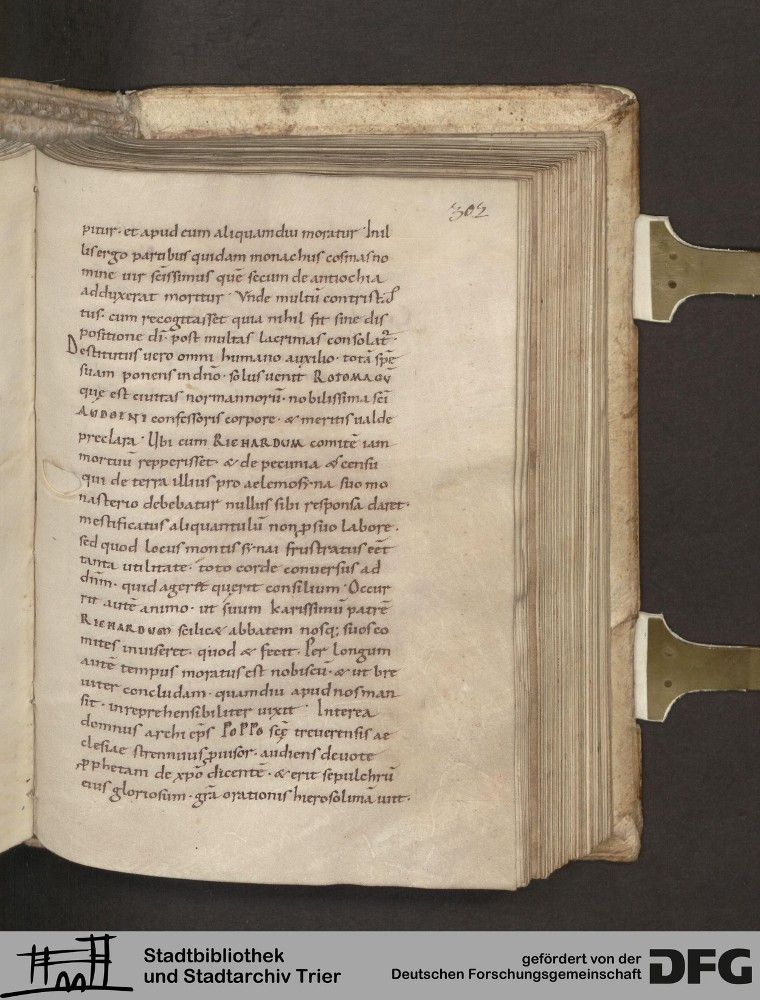 302
pitur· et apud eum aliquamdiu moratur· In il
lis ergo partibus quidam monachus cosmas no
mine uir sc̄issimus quē secum de antiochia
adduxerat moritur· Vnde multū contrista
tus· cum recogitasset quia nihil fit sine dis
positione dī· post multas lacrimas consolat᷒·
Destitutus uero omni humano auxilio· totā spē
suam ponens in dn̄o· solus uenit ROTOMAGŪ
quę est ciuitas normannorū· nobilissima sc̄i
AVDOENI confessoris corpore· & meritis ualde
preclara· Ubi cum RICHARDUM comitē iam
mortuū repperisset· & de pecunia & censu
qui de terra illius pro aelemosẏna suo mo
nasterio debebatur nullus sibi responsa daret·
mestificatus aliquantulū non ꝓ suo labore·
sed quod locus montis sẏnai frustratus eēt
tanta utilitate· toto corde conuersus ad
dn̄m· quid ageret querit consilium· Occur
rit autē animo· ut suum karissimū patrē
RICHARDUM scilic& abbatem nosq; suos co
mites inuiseret· quod & fecit· Per longum
autē tempus moratus est nobiscū· & ut bre
uiter concludam· quamdiu apud nos man
sit· inreprehensibiliter uixit· Interea
domnus archi ep̄s POPPO sc̄ę treuerensis ae
clesiae strennuus ꝓuisor· audiens deuote
ꝓphetam de xp̄o dicentē· & erit sepulchrū
eius gloriosum· gr̄a orationis hierosolimā iuit·
Stadtbibliothek
und Stadtarchiv Trier
gefördert von der
Deutschen Forschungsgemeinschaft
DFG